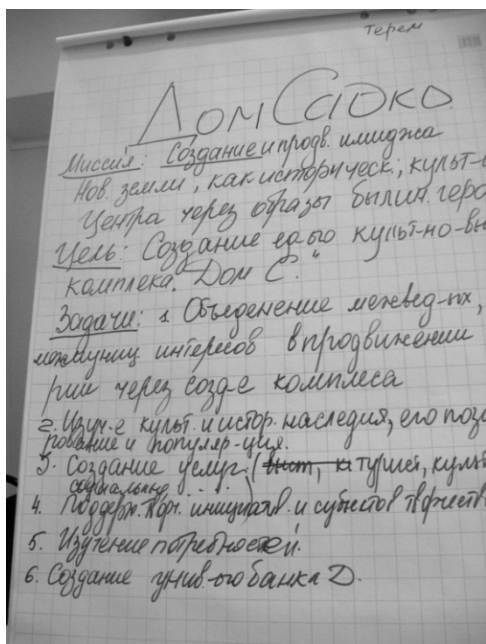 терем
Дом Садко
Миссия: Создание и продв. имиджа
Нов. земли, как историческ; культ-
Центра через образы былин. геро
Цель: Создание ед-ого культ-но-вы
комплека „Дом С."
Задачи: 1. Объеденение межвед-ых,
межмуниц. интересов в продвижении
рии через созд-е комплеса
2. Изуч-е культ. и истор. наследия, его пози
рование и популяр-ция.
3. Создание услуг (турист, культ
социальные ....)
4. Поддерж. твор. инициатив. и субъектов творчеств
5. Изучение потребностей.
6. Создание унив-ого банка Д.